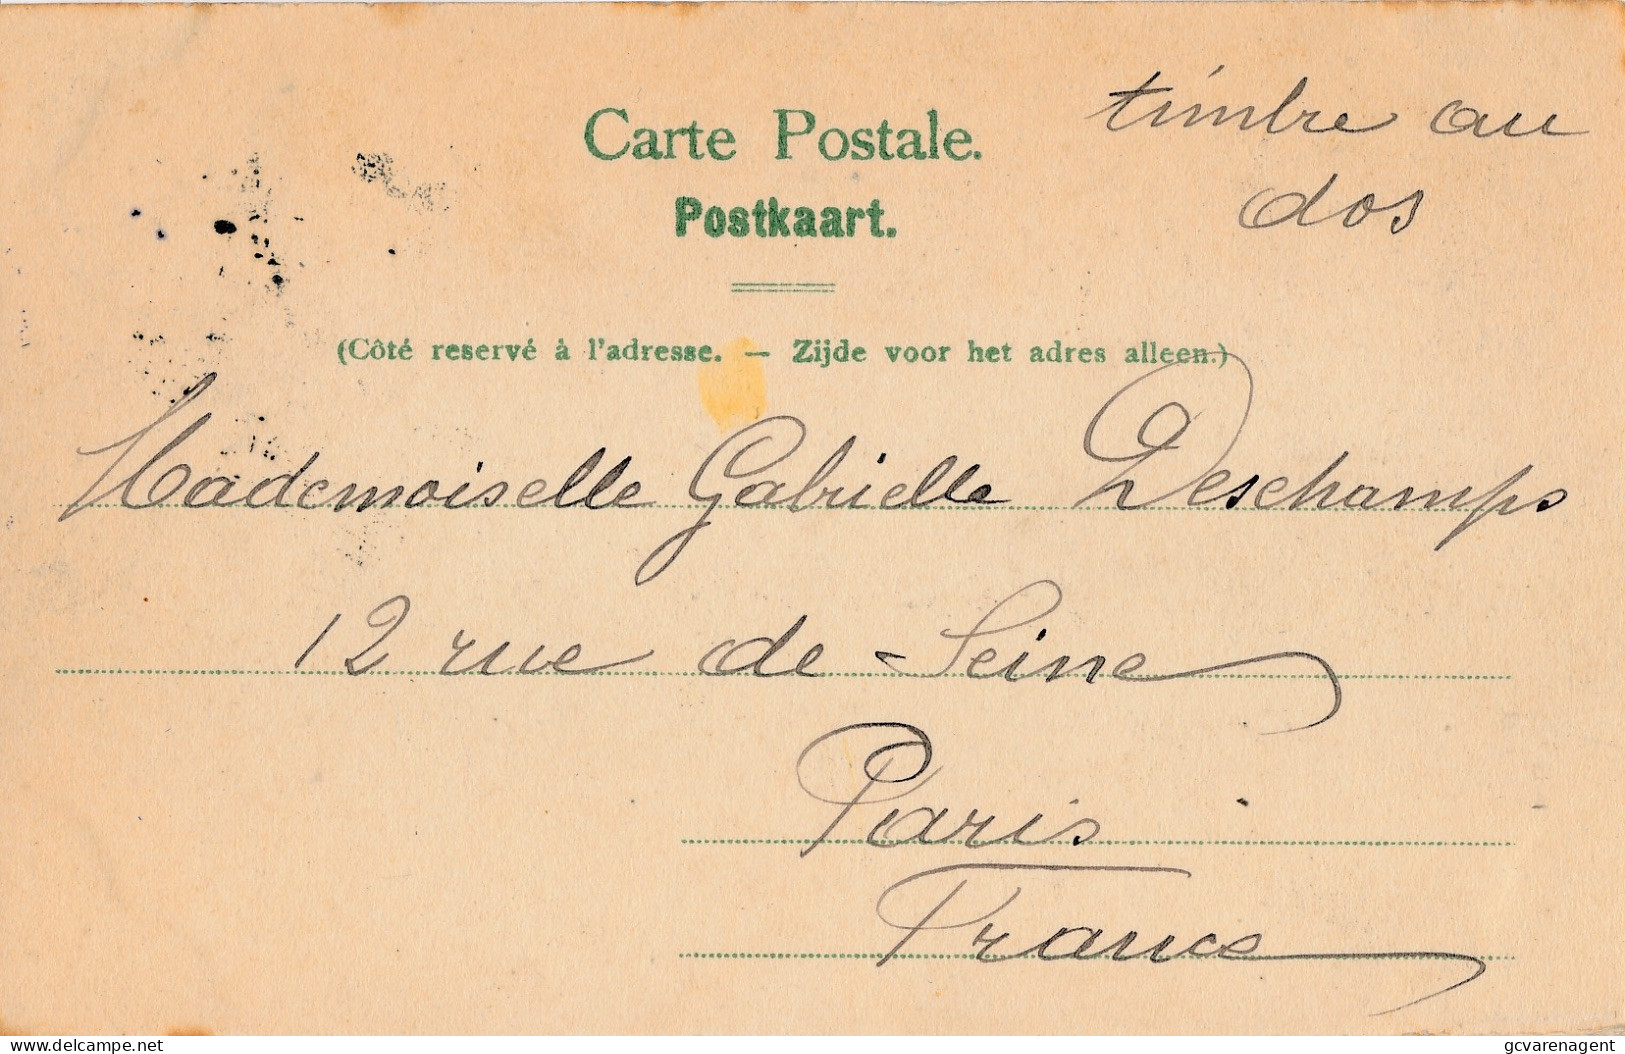 timbre au
dos
Carte Postale.
Postkaart.
(Côté reservé à l'adresse. — Zijde voor het adres alleen.)
Mademoiselle Gabrielle Deschamps
12 rue de Seine
Paris
France
delcampe.net
gcvarenagent